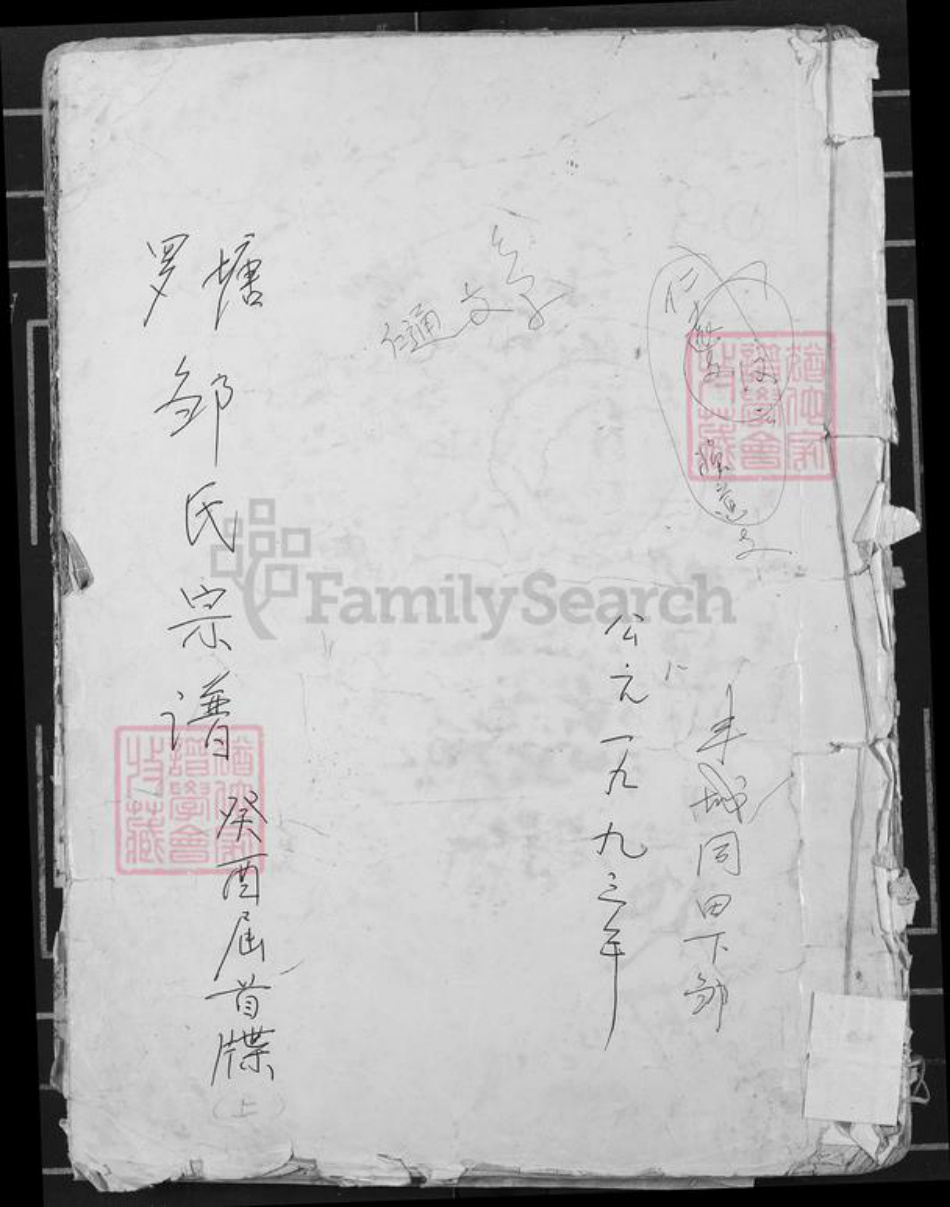 丰城同田下邹
公元一九九三年
仁通文
罗塘邹氏宗谱
癸酉届首牒
（上）
猶他家譜學會特藏
猶他家譜學會特藏
FamilySearch